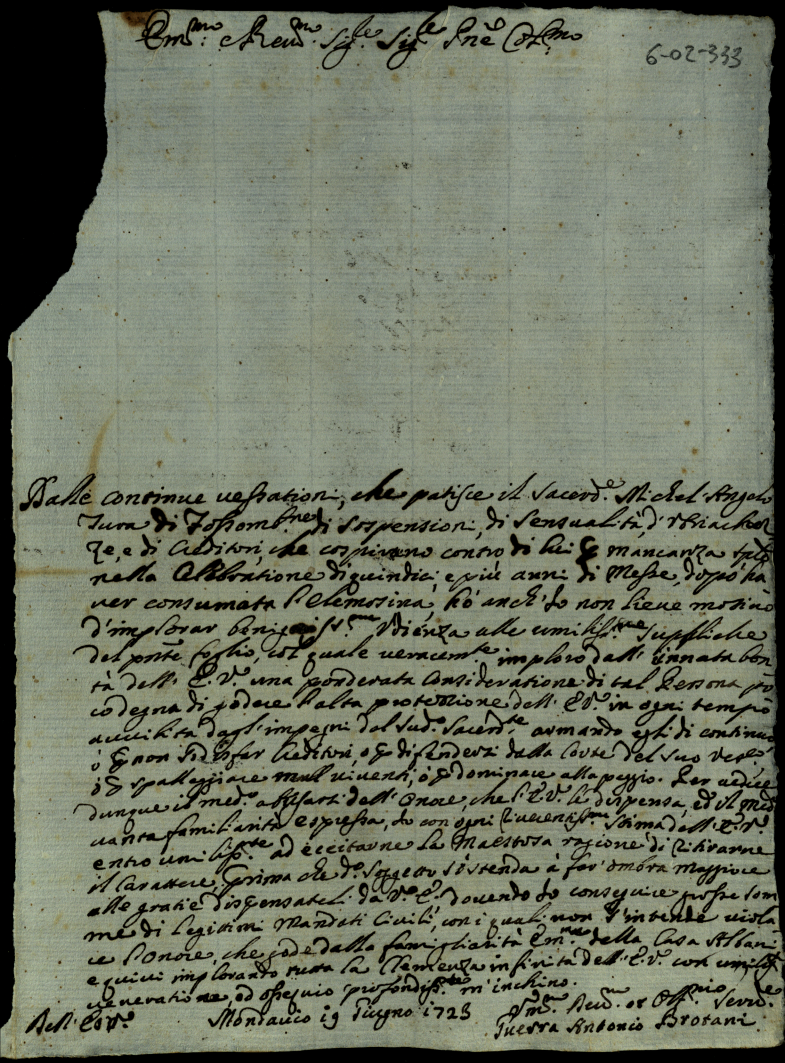 Em.mo e Rev.mo Sig.re Sig.re Pne Col.mo
6-02-333
Dalle continue vessationi, che patisce il Sacerd.e Michel' Angelo
di Fossomb.ne di Sospensioni, di Sensualità, d'Vbriachez
ze, e di Creditori, che cospirano contro di lui p mancanza
nella Celebratione di quindici, e più anni di Messe, dopo ha
ver consumata l'elemosina, hò anch'Io non lieve motivo
d'implorar Vdienza alle umiliss.me suppliche
del pnte foglio, col quale veracem.te imploro dall' innata bon
tà dell' E.V. una ponderata consideratione di tal Persona po
co degna di godere l'alta protezzione dell' E.V. in ogni tempo
avvilita dagl'impegni del Sud.o Sacerd.te armando egli di continuo
ò p non Sodisfar Creditori, ò p difendersi dalla Corte del suo Vesc.o
ò p spalleggiare mal viventi, ò p dominare alla peggio. Per
dunque il med.o abusarsi dell' onore, che l'E.V. le dispensa, ed il
vanta familiarità espressa, Io con ogni stima dell' E.V.
entro umiliss.te ad eccitarne la Maestosa ragione di ritirarne
il Carattere, prima che d.o Soggetto s'estenda à far' ombra maggiore
alle gratie dispensateli da V.E. dovendo Io conseguire grosse som
me di legittimi Mandati Civili, con i quali non s'intende viola
re l'onore, che gode dalla famigliarità Em.ma della Casa Albani
e quivi implorando tutta la Clemenza infinita dell' E.V. con umiliss.a
veneratione, ed ossequio profondiss.te m'inchino.
Dell' E.V. Mondavio 19 Giugno 1723 Vm.o Dev.mo et Obl.mo Serv.re
Guerra Antonio Brotani